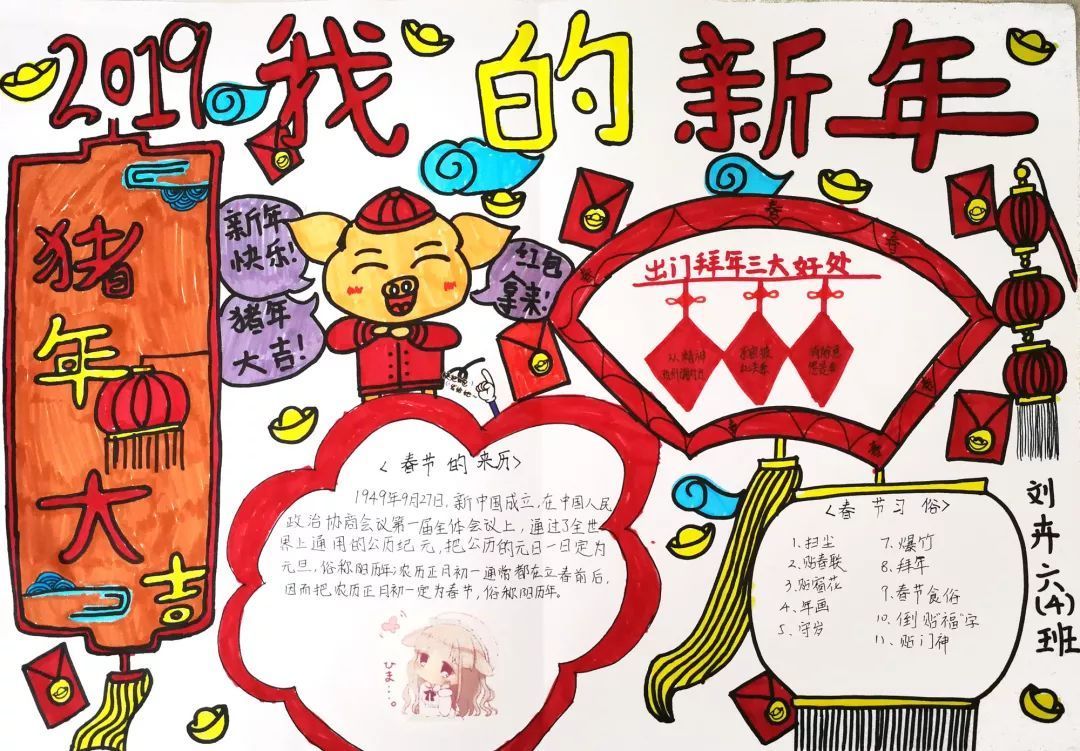 2019我的新年
猪年大吉
新年
快乐!
猪年
大吉!
红包
拿来!
春
出门拜年三大好处
<春节的来历>
1949年9月27日,新中国成立,在中国人民
政治协商会议第一届全体会议上,通过了全世
界上通用的公历纪元,把公历的元日一日定为
元旦,俗称阳历年;农历正月初一通常都在立春前后,
因而把农历正月初一定为春节,俗称阴历年。
ひま...。
<春节习俗>
1.扫尘
2.贴春联
3.贴窗花
4.年画
5.守岁
7.爆竹
8.拜年
9.春节食俗
10.倒贴"福"字
11.贴门神
刘卉六(4)班